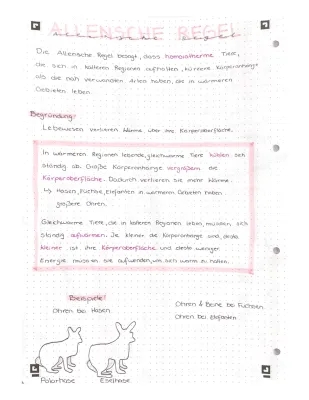 ALLENSCHE REGEL
Die Allensche Regel besagt, dass homoiotherme Tiere,
die sich in kälteren Regionen aufhalten, kürzere Körperanhänge
als die nah verwandten Arten haben, die in wärmeren
Gebieten leben.
Begründung:
Lebewesen verlieren Wärme über ihre Körperoberfläche.
In wärmeren Regionen lebende, gleichwarme Tiere kühlen sich
ständig ab. Große Körperanhänge vergrößern die
Körperoberfläche. Dadurch verlieren sie mehr Wärme.
↳ Hasen, Füchse, Elefanten in wärmeren Gebieten haben
größere Ohren.
Gleichwarme Tiere, die in kälteren Regionen leben, müssen sich
ständig aufwärmen. Je kleiner die Körperanhänge sind, desto
kleiner ist ihre Körperoberfläche und desto weniger
Energie müssen sie aufwenden, um sich warm zu halten.
Beispiele:
Ohren bei Hasen
Ohren & Beine bei Füchsen
Ohren bei Elefanten
Polarhase
Eselhase